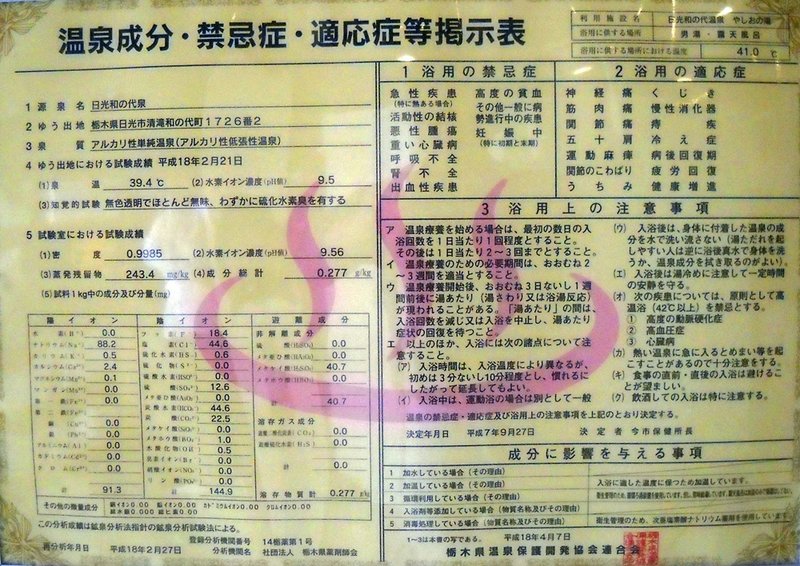 温泉成分・禁忌症・適応症等掲示表
利用施設名 日光和の代温泉 やしおの湯
浴用に供する場所 男湯・露天風呂
浴用に供する場所における温度 41.0 ℃
1 源泉名 日光和の代泉
2 ゆう出地 栃木県日光市清滝和の代町1726番2
3 泉質 アルカリ性単純温泉(アルカリ性低張性温泉)
4 ゆう出地における試験成績 平成18年2月21日
(1)泉温 39.4℃ (2)水素イオン濃度(pH値) 9.5
(3)知覚的試験 無色透明でほとんど無味、わずかに硫化水素臭を有する
5 試験室における試験成績
(1)密度 0.9985 (2)水素イオン濃度(pH値) 9.56
(3)蒸発残留物 243.4 mg/kg (4)成分総計 0.277 g/kg
(5)試料1kg中の成分及び分量(mg)
陽イオン
水素(H⁺) 0.0
ナトリウム(Na⁺) 88.2
カリウム(K⁺) 0.5
カルシウム(Ca²⁺) 2.4
マグネシウム(Mg²⁺) 0.1
0.0
0.0
0.0
0.0
0.0
アルミニウム(Al³⁺) 0.0
0.0
0.0
計 91.3
陰イオン
フッ素(F⁻) 18.4
塩素(Cl⁻) 44.6
硫化水素(HS⁻) 0.6
0.0
0.0
硫酸 12.6
0.0
炭酸水素(HCO₃⁻) 44.6
炭酸(CO₃²⁻) 22.5
0.0
メタホウ酸(BO₂⁻) 1.0
水酸化物(OH⁻) 0.5
0.0
0.0
リン酸 0.0
計 144.9
遊離成分
非解離成分
0.0
0.0
メタケイ酸(H₂SiO₃) 40.7
0.0
計 40.7
溶存ガス成分
0.0
0.0
計 0.0
溶存物質計 0.277 g/kg
その他の微量成分 銅イオン0.00 鉛イオン0.00 カドミウムイオン0.00 クロムイオン0.00
総水銀 0.000 総ヒ素 0.00
この分析成績は鉱泉分析法指針の鉱泉分析試験法による。
再分析年月日 平成18年2月27日
登録分析機関番号 14栃薬第1号
分析機関名 社団法人 栃木県薬剤師会
1 浴用の禁忌症
急性疾患 高度の貧血
(特に熱ある場合) その他一般に病
活動性の結核 勢進行中の疾患
悪性腫瘍 妊娠中
重い心臓病 (特に初期と末期)
呼吸不全
腎不全
出血性疾患
2 浴用の適応症
神経痛 くじき
筋肉痛 慢性消化器
関節痛 痔疾
五十肩 冷え症
運動麻痺 病後回復期
関節のこわばり 疲労回復
うちみ 健康増進
3 浴用上の注意事項
ア 温泉療養を始める場合は、最初の数日の入
浴回数を1日当たり1回程度とすること。
その後は1日当たり2~3回までとすること。
イ 温泉療養のための必要期間は、おおむね2
~3週間を適当とすること。
ウ 温泉療養開始後、おおむね3日ないし1週
間前後に湯あたり(湯さわり又は浴湯反応)
が現われることがある。「湯あたり」の間は、
入浴回数を減じ又は入浴を中止し、湯あたり
症状の回復を待つこと。
エ 以上のほか、入浴には次の諸点について注
意すること。
(ア) 入浴時間は、入浴温度により異なるが、
初めは3分ないし10分程度とし、慣れるに
したがって延長してもよい。
(イ) 入浴中は、運動浴の場合は別として一般
(ウ) 入浴後は、身体に付着した温泉の成
分を水で洗い流さない(湯ただれを起し
やすい人は逆に浴後真水で身体を洗
うか、温泉成分を拭き取るのがよい)。
(エ) 入浴後は湯冷めに注意して一定時間
の安静を守る。
(オ) 次の疾患については、原則として高
温浴(42℃以上)を禁忌とする。
① 高度の動脈硬化症
② 高血圧症
③ 心臓病
(カ) 熱い温泉に急に入るとめまい等を起
こすことがあるので十分注意をする。
(キ) 食事の直前・直後の入浴は避けるこ
とが望ましい。
(ク) 飲酒しての入浴は特に注意する。
温泉の禁忌症・適応症及び浴用上の注意事項を上記のとおり決定する。
決定年月日 平成7年9月27日 決定者 今市保健所長
成分に影響を与える事項
1 加水している場合(その理由)
2 加温している場合(その理由) 入浴に適した温度に保つため加温しています。
3 循環利用している場合(その理由)
4 入浴剤等添加している場合(物質名称及びその理由)
5 消毒処理している場合(物質名称及びその理由) 衛生管理のため、次亜塩素酸ナトリウム薬剤を使用しています。
1~3は本書の写である。 平成18年4月7日
栃木県温泉保護開発協会連合会